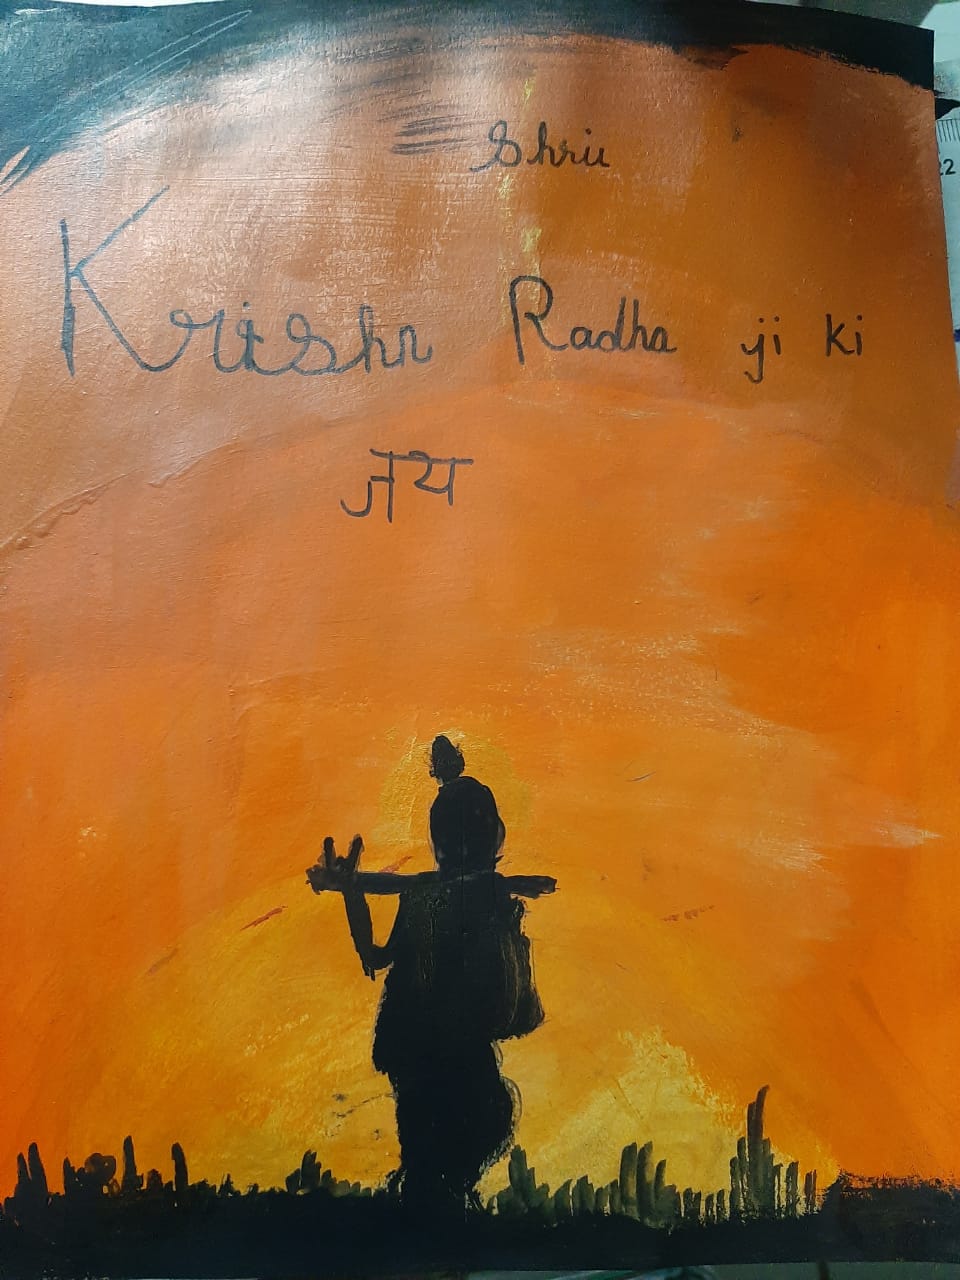 Shrii
Krishn Radha ji ki
जय
22